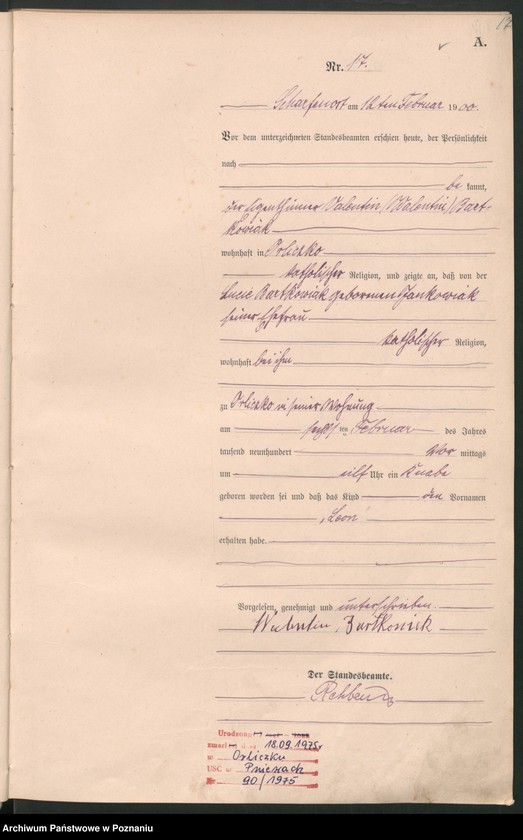 17
A.
Nr. 17.
Scharfenort am 12ten Februar 1900.
Vor dem unterzeichneten Standesbeamten erschien heute, der Persönlichkeit
nach
be kannt,
der Eigenthümer Valentin (Walentin) Bart-
kowiak
wohnhaft in Orliczko
katholischer Religion, und zeigte an, daß von der
Lucie Bartkowiak geborenen Jankowiak
seiner Ehefrau
katholischer Religion,
wohnhaft bei ihm
zu Orliczko in seiner Wohnung
am sechsten Februar des Jahres
tausend neunhundert Vor mittags
um eilf Uhr ein Knabe
geboren worden sei und daß das Kind den Vornamen
„Leon“
erhalten habe.
Vorgelesen, genehmigt und unterschrieben
Bartkowiak
Der Standesbeamte.
zmarł 18.09.1975r
w Orliczku
USC w Pniewach
Nr 90/1975
Archiwum Państwowe w Poznaniu